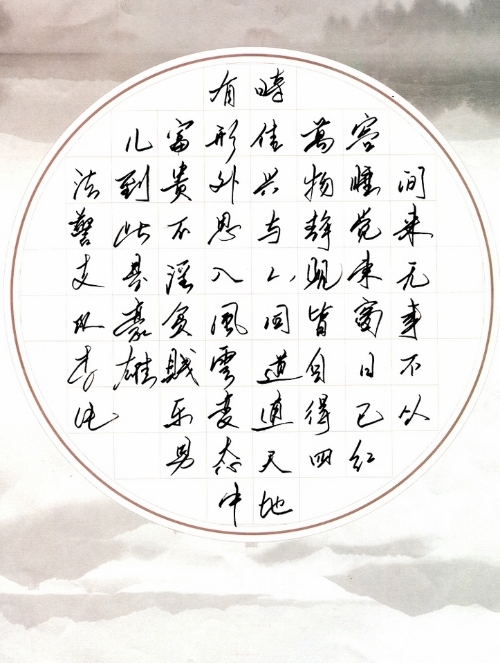 间来无事不从
容睡觉东窗日已红
萬物静观皆自得四
時佳兴与人同道通天地
有形外思入風雲变态中
富贵不淫贫贱乐男
儿到此是豪雄
法警支队李